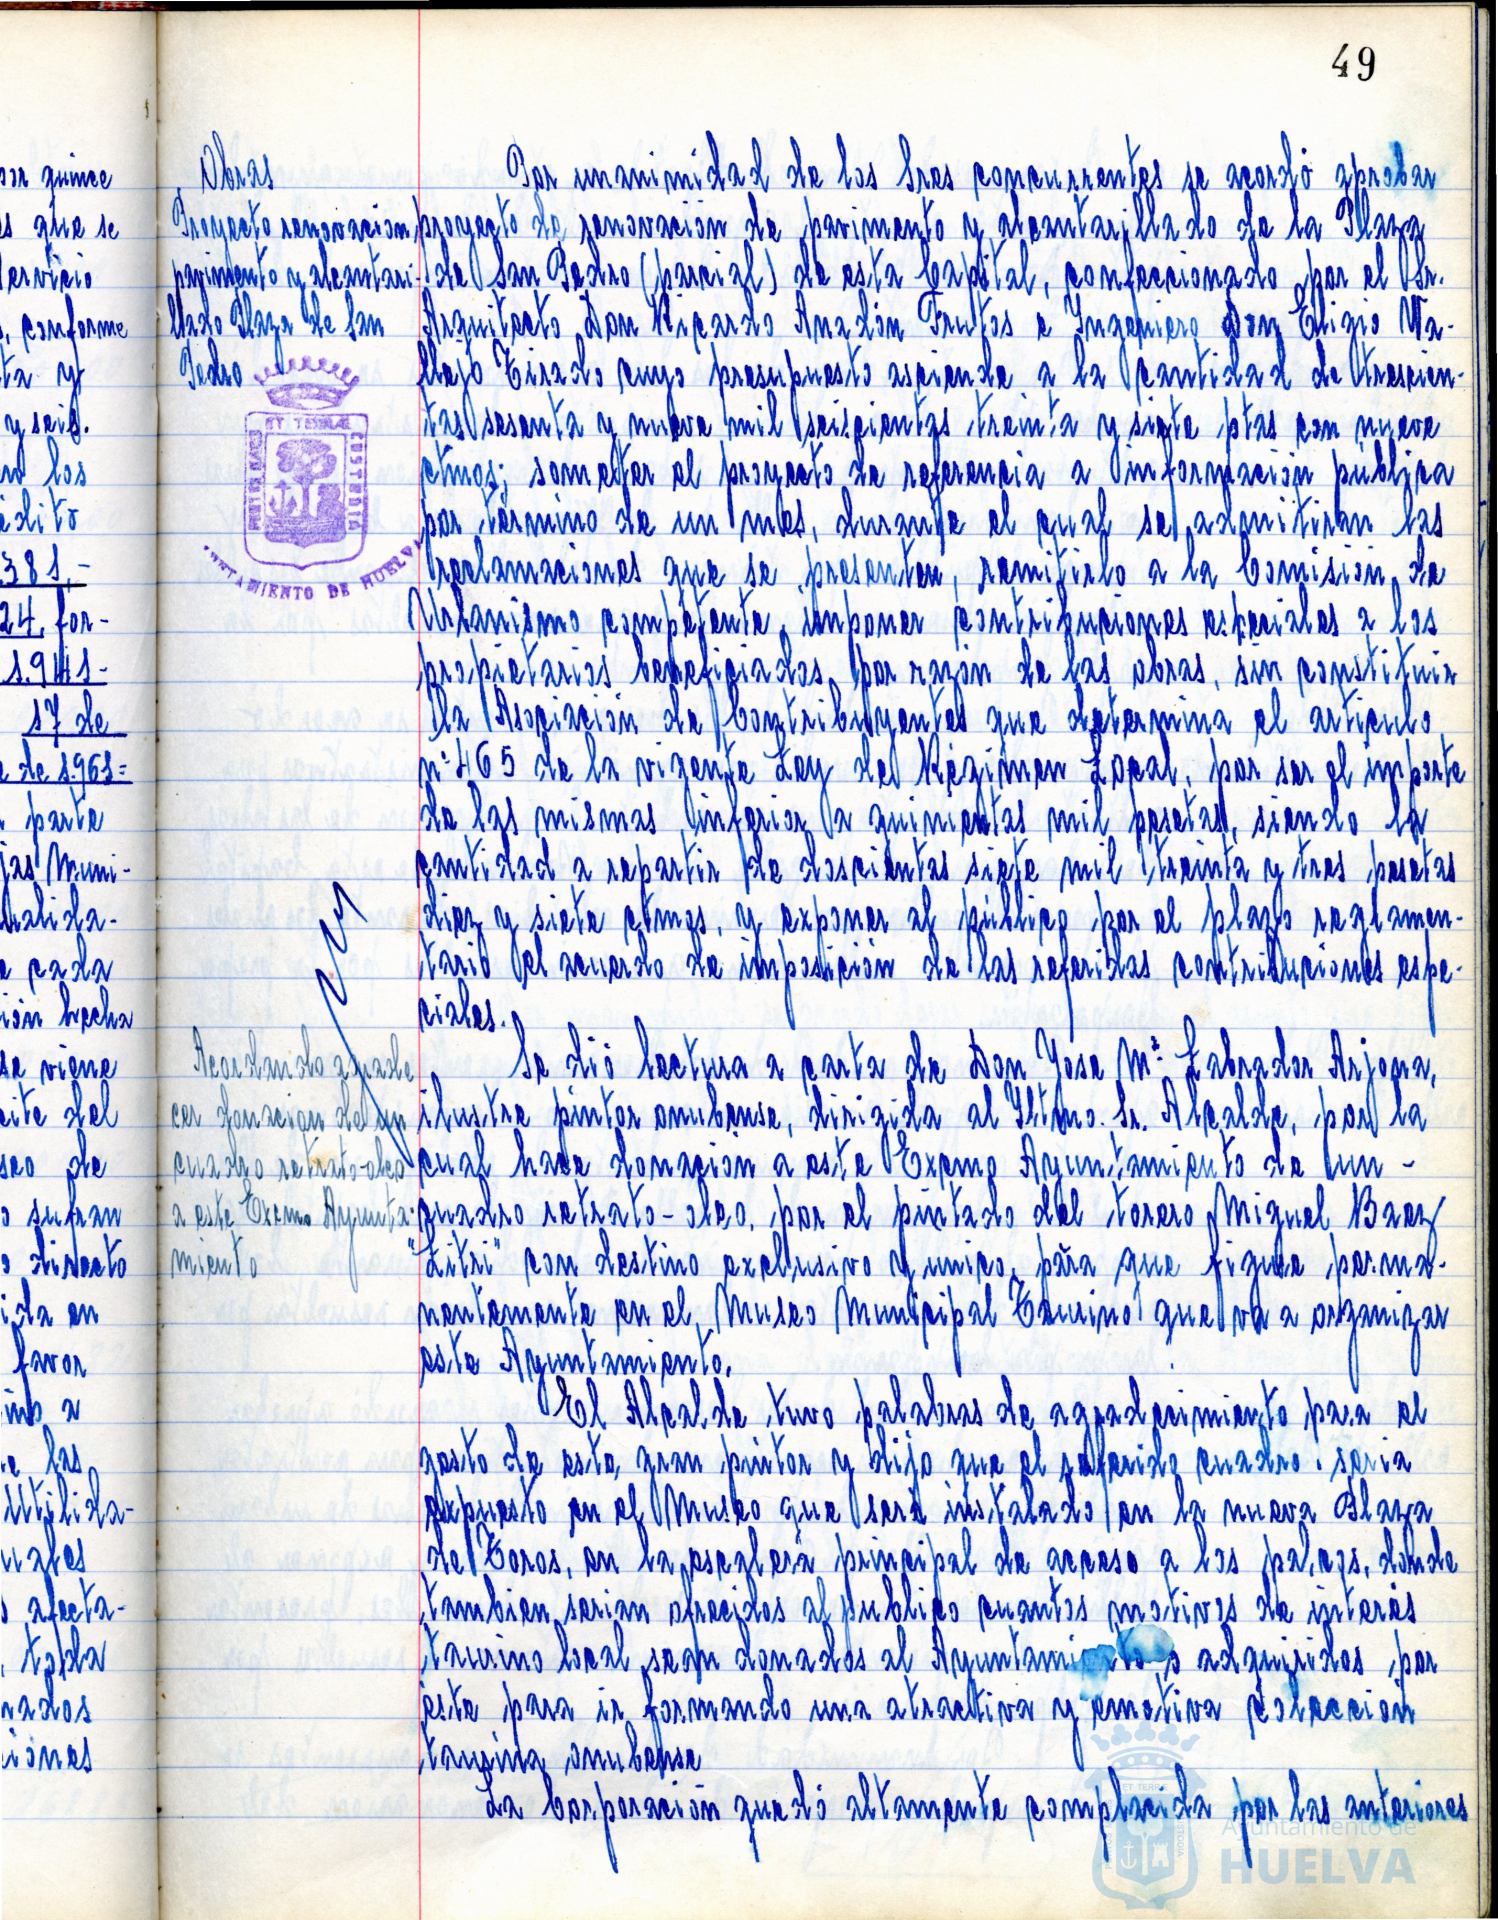 49
or quince
s que se
ervicio
, conforme
ta y
y seis.
n los
édito
381,-
24, for-
1.941-
17 de
e de 1.961=
parte
jas Muni-
ualida-
e cada
ión hecha
se viene
eite del
seo de
o sufran
o directo
ida en
favor
ino a
e las
Utilida-
uales
o afecta-
, toda
nados
ciones
Obras
Proyecto renovación
pavimento y alcantari-
llado Plaza de San
Pedro
AYUNTAMIENTO DE HUELVA
Por unanimidad de los Sres concurrentes se acordó aprobar
proyecto de renovación de pavimento y alcantarillado de la Plaza
de San Pedro (parcial) de esta Capital, confeccionado por el Sr.
Arquitecto Don Ricardo Anadón Frutos e Ingeniero Don Eligio Va-
llejo Tirado cuyo presupuesto asciende a la cantidad de trescien-
tas sesenta y nueve mil seiscientas treinta y siete ptas con nueve
ctmos; someter el proyecto de referencia a información pública
por término de un mes, durante el cual se admitiran las
reclamaciones que se presenten, remitirlo a la Comisión de
Urbanismo competente, imponer contribuciones especiales a los
propietarios beneficiados por razón de las obras, sin constituir
la Asociación de Contribuyentes que determina el articulo
nº 465 de la vigente Ley de Régimen Local, por ser el importe
de las mismas inferior a quinientas mil pesetas, siendo la
cantidad a repartir de doscientas siete mil treinta y tres pesetas
diez y siete ctmos, y exponer al público por el plazo reglamen-
tario el acuerdo de imposición de las referidas contribuciones espe-
ciales.
Acordando agrade-
cer donación de un
cuadro retrato-oleo
a este Excmo Ayunta-
miento
Se dió lectura a carta de Don Jose Mª Labrador Arjona,
ilustre pintor onubense, dirigida al Iltmo. Sr. Alcalde, por la
cual hace donación a este Excmo Ayuntamiento de un -
cuadro retrato-oleo, por el pintado del torero Miguel Baez
"Litri" con destino exclusivo y unico, para que figure perma-
nentemente en el Museo Municipal Taurino que va a organizar
este Ayuntamiento.
El Alcalde tuvo palabras de agradecimiento para el
gesto de este gran pintor y dijo que el referido cuadro seria
expuesto en el Museo que será instalado en la nueva Plaza
de Toros, en la escalera principal de acceso a los palcos, donde
tambien serian ofrecidos al publico cuantos motivos de interés
taurino local sean donados al Ayuntamiento o adquiridos por
este para ir formando una atractiva y emotiva colección
taurina onubense
La Corporación quedó altamente complacida por las anteriores
Ayuntamiento de
HUELVA